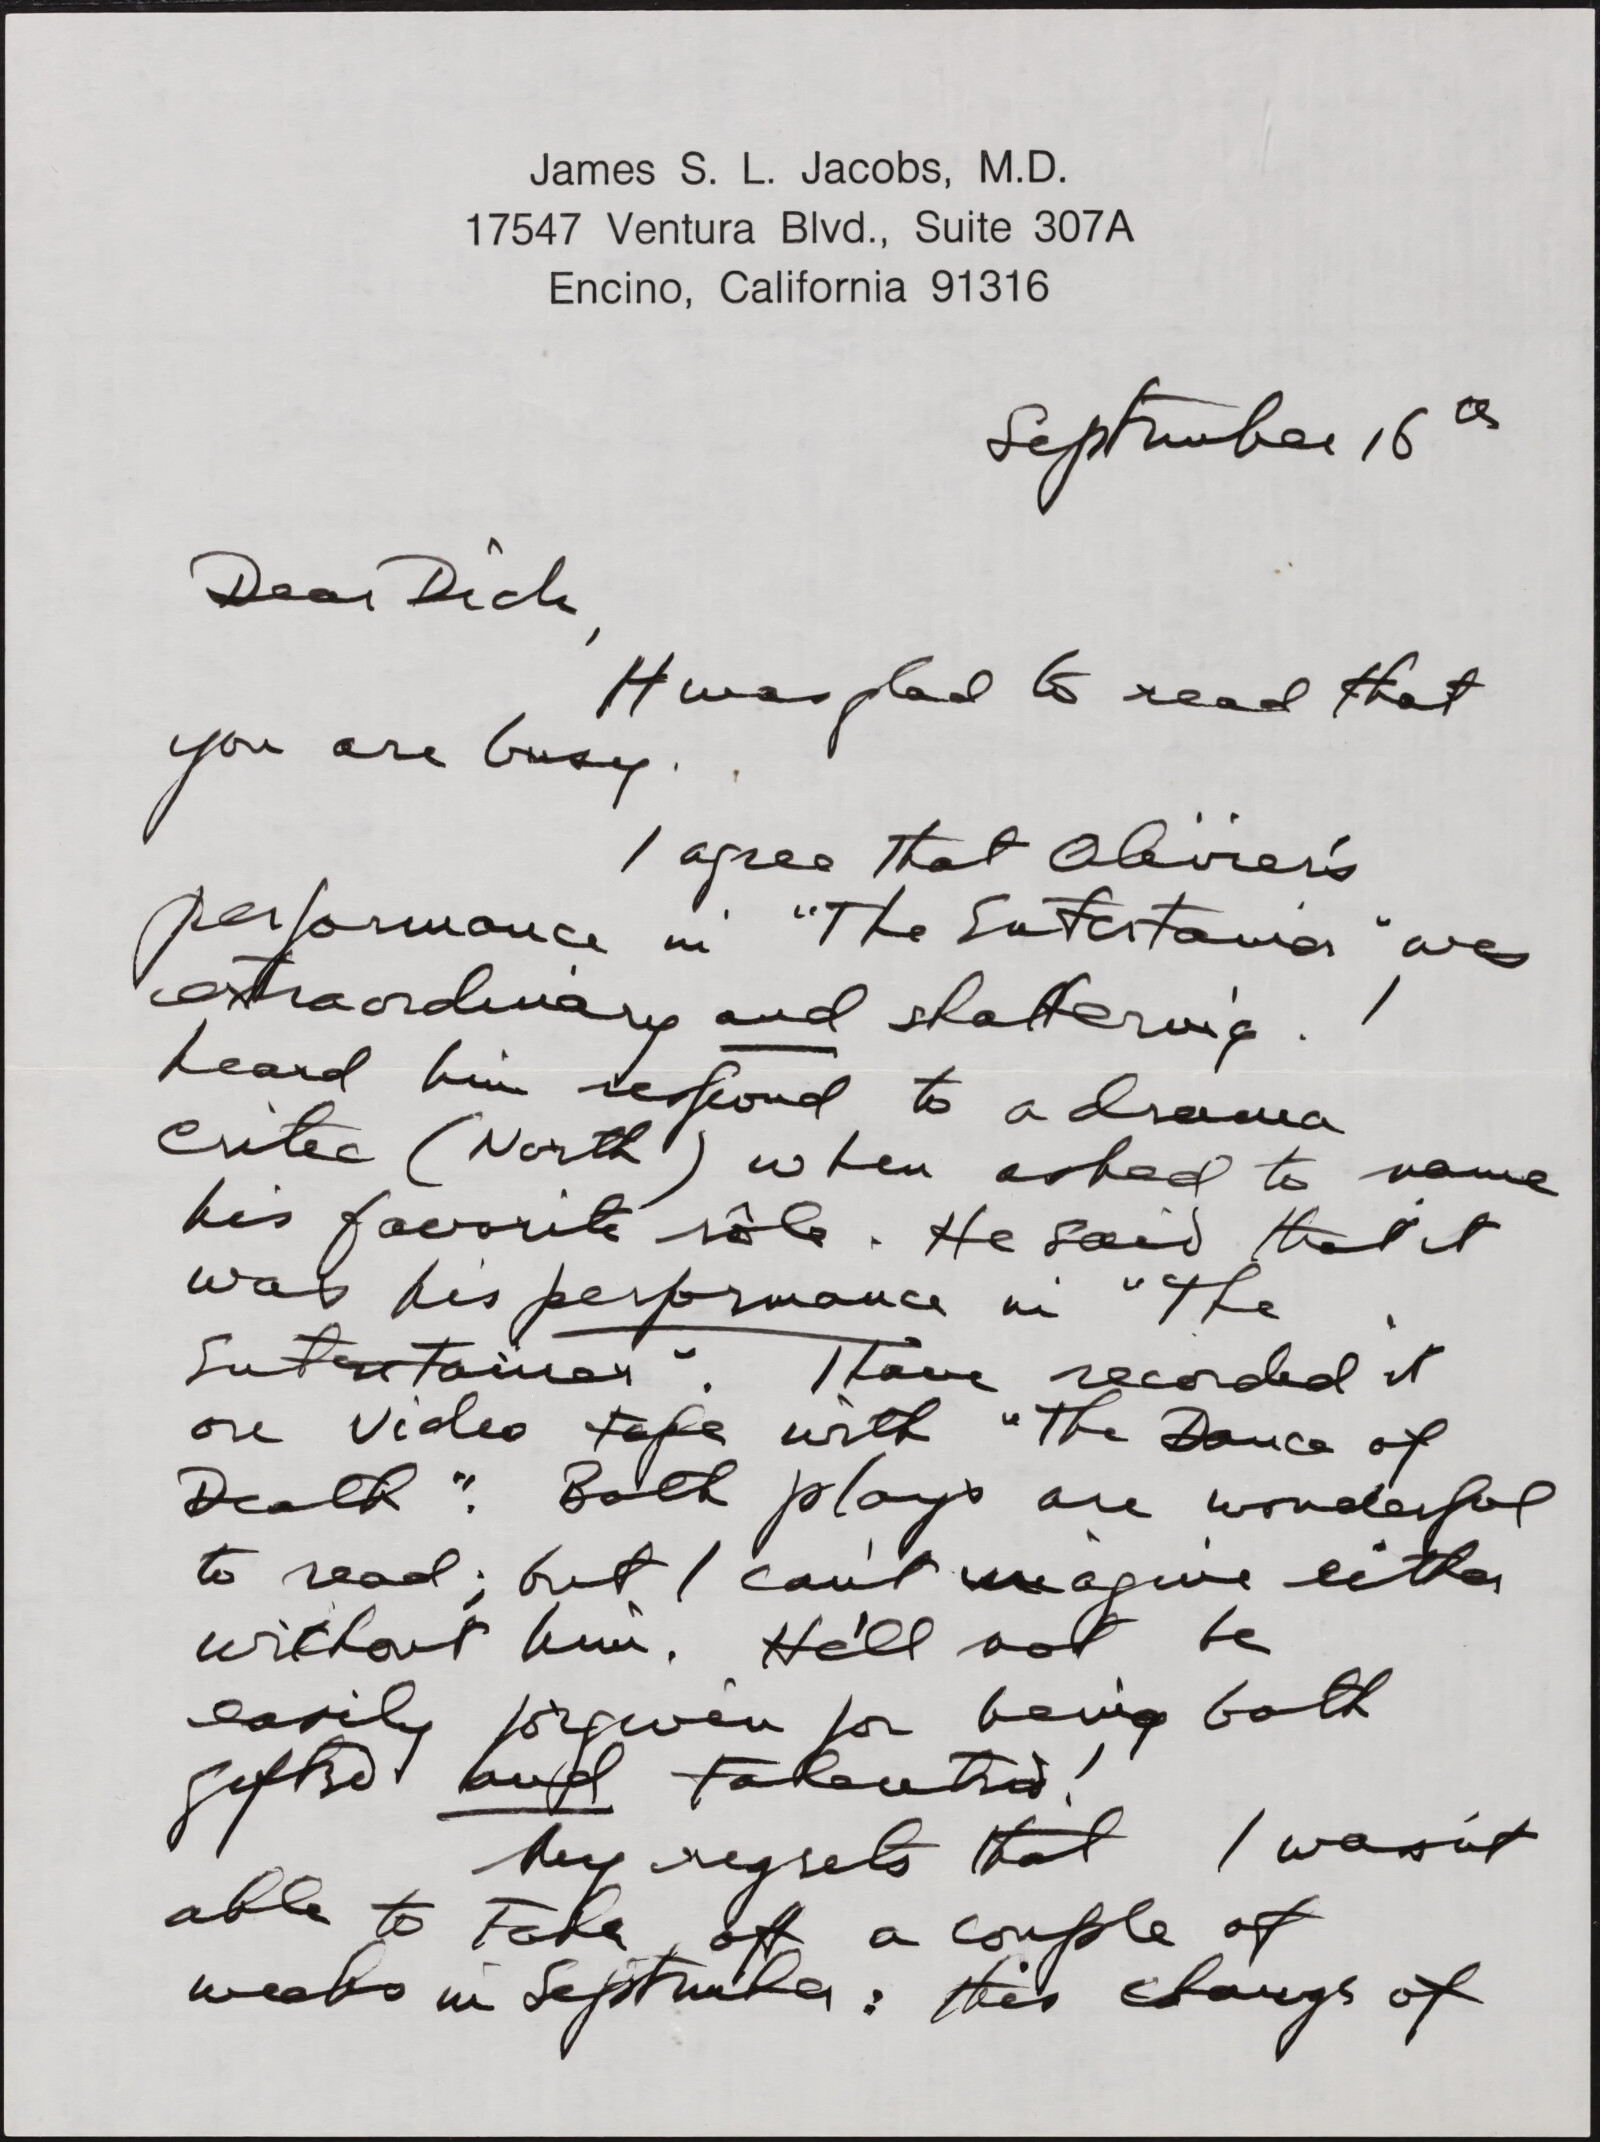 James S. L. Jacobs, M.D.
17547 Ventura Blvd., Suite 307A
Encino, California 91316
September 16th
Dear Dick,
I was glad to read that
you are busy.
I agree that Olivier's
performance in "The Entertainer" was
extraordinary and shattering. I
heard him respond to a drama
critic (North) when asked to name
his favorite rôle. He said that it
was his performance in "The
Entertainer". I have recorded it
on video tape with "The Dance of
Death". Both plays are wonderful
to read; but I can't imagine either
without him. He'll not be
easily forgiven for being both
gifted and talented!
My regrets that I wasn't
able to take off a couple of
weeks in September: this change of